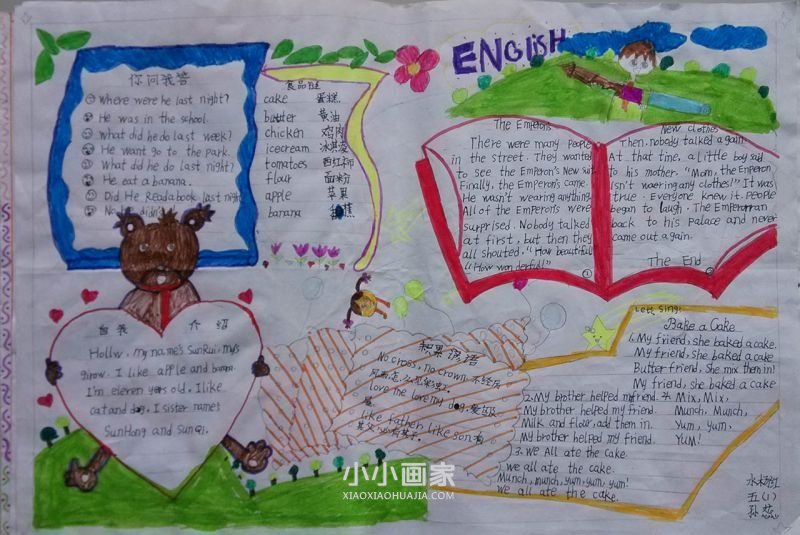 ENGLISH
你问我答
Where were he last night?
He was in the school.
What did he do last week?
He want go to the park.
What did he do last night?
He eat a banana.
Did He Readabook last night
No didn't
食品链
cake 蛋糕
butter 黄油
chicken 鸡肉
icecream 冰淇凌
tomatoes 西红柿
flour 面粉
apple 苹果
banana 蕉
The Emperors
There were many people
in the street. They wanted
to see the Emperon's New suit
Finally, the Emperon's came.
He wasn't wearing anything
All of the Emperon's were
surprised. Nobody talked
at first, but then they
all shouted. "How beautiful
"How wonderful!"
①
New clothes
Then, nobody talked again.
At that time, a little boy said
to his mother. "Mom, the Emperon
isn't waering any clothes!" It was
true. Everyone knew it. People
began to laugh. The Emperorran
back to his palace and never
came out again.
The End
自我介绍
Hollw, my name's SunRui, mys
girow. I like apple and banana.
I'm eleven years old, Ilike
cat and dog, I sister names
SunHong and SunQi.
积累谚语
No cross, no crown.
love me love my dog.
like father like son.有
其父必有其子.
Let's Sing!
Bake a Cake
1. My friend, she baked a cake.
My friend, she baked a cake.
Butter friend, she mix them in!
My friend, she baked a cake
2. My brother helped my friend. Mix, Mix,
My brother helped my friend. Munch, Munch,
Milk and flour, add them in. Yum, Yum,
My brother helped my friend. YUM!
3. We all ate the cake.
We all ate the cake.
Munch, munch, yum, yum, yum!
We all ate the cake.
五(1)
小小画家
XIAOXIAOHUAJIA.COM